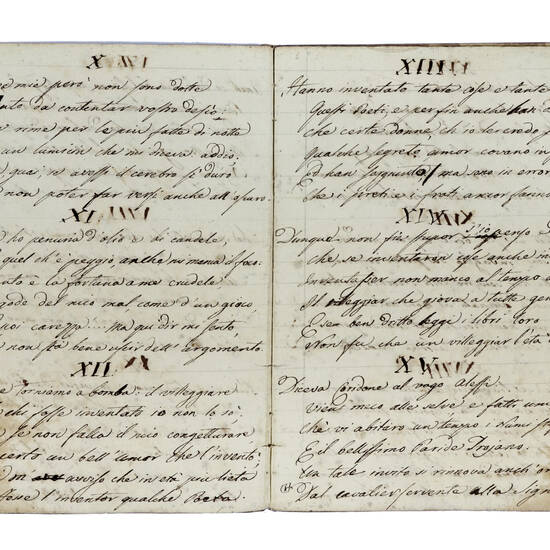 X
mie però non sono dotte
da contentar vostro desio
rime per le più fatte di notte
un lumicin che mi diceva addio
qua, se avessi il cerebro sì duro
non poter far versi anche all'oscuro.
XI
ho penuria d'olio e di candele,
quel ch'è peggio, anche
e la fortuna a me crudele
gode del mio mal come d'un gioco
carezza... Ma qui dir mi sento
non sta bene uscir dell'argomento.
XII
torniamo a bomba: il villeggiare
chi fosse inventato io non lo so:
Se non falla il mio congetturare
certo un bell'umor che l'inventò;
avviso che in età più lieta
l'inventor qualche Poeta.
XIII
Hanno inventato tante cose e tante
Questi Poeti, e perfin anche
Che certe donne, ch'io lor credo
Qualche segreto amor covano in
ed han soggiunto, ma sono in error
Che i preti e i frati ancor fanno
XIV
Dunque non fia stupor s'io penso
che, se inventaron cose anche in
non manco al tempo
Il villeggiar che giova a tutte gen
E sen ben dotto leggi i libri loro
Non fu che un villeggiar l'età d
XV
Diceva Coridone al vago Alessi
Vieni meco alle selve e fatti um
che vi abitaro un tempo i Numi st
E il bellissimo Paride Trojano.
Un tale invito si rinnova anch'
Dal cavalier servente alla Sign